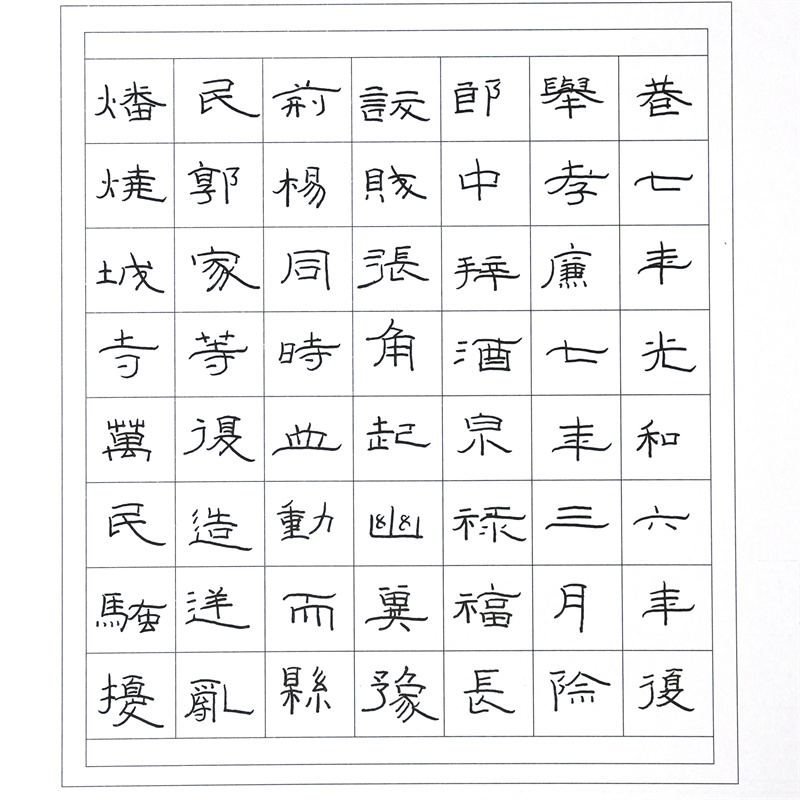 巷七年光和六年復
舉孝廉七年三月除
郎中拜酒泉祿福長
訞賊張角起幽冀豫
荊楊同時並動而縣
民郭家等復造逆亂
燔燒城寺萬民騷擾